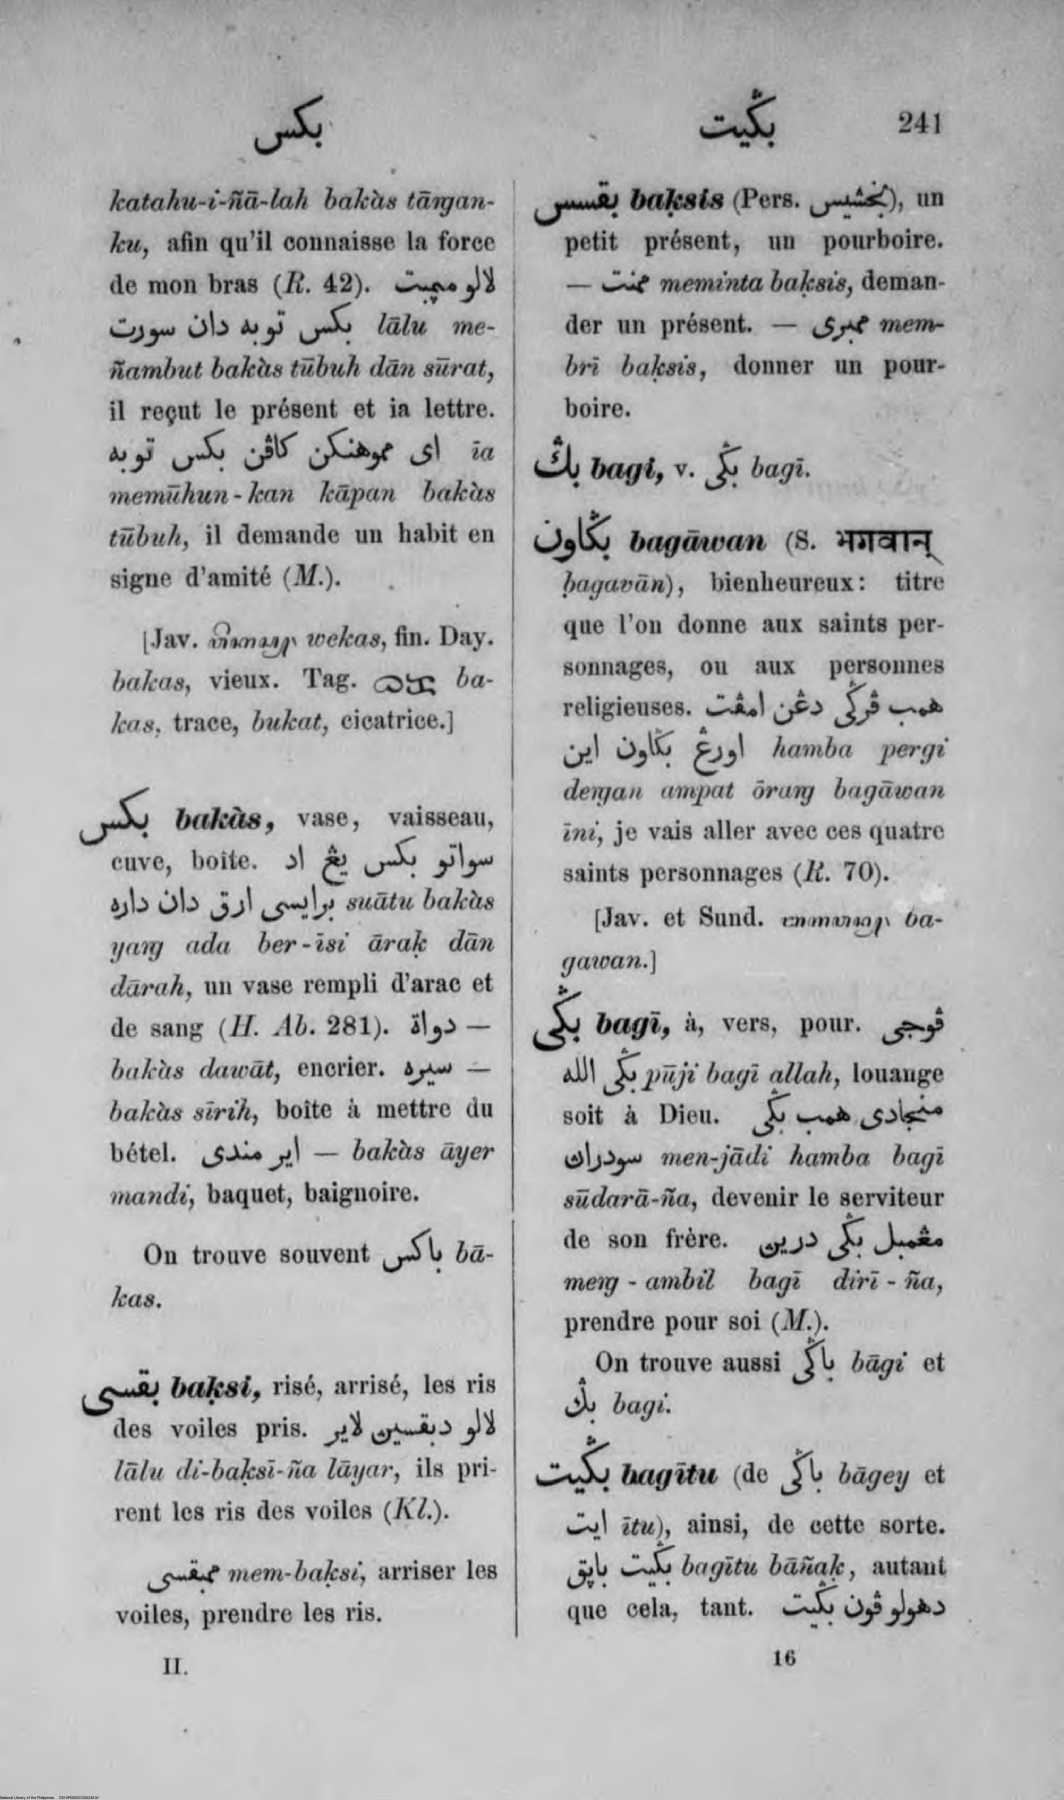 بكس
بݢيت 241
katahu-i-ñā-lah bakàs tāṅgan-
ku, afin qu'il connaisse la force
de mon bras (R. 42). لالو
بكس توبه دان سورت lālu me-
ñambut bakàs tūbuh dān sūrat,
il reçut le présent et ia lettre.
اى مموهنكن كاڤن بكس توبه īa
memūhun-kan kāpan bakàs
tūbuh, il demande un habit en
signe d'amité (M.).
[Jav. wekas, fin. Day.
bakas, vieux. Tag. ba-
kas, trace, bukat, cicatrice.]
بكس bakàs, vase, vaisseau,
cuve, boîte. سواتو بكس يڠ اد
برايسى ارق دان داره suātu bakàs
yaṅg ada ber-īsi āraḳ dān
dārah, un vase rempli d'arac et
de sang (H. Ab. 281). دواة —
bakàs dawāt, encrier. سيره —
bakàs sīrih, boîte à mettre du
bétel. اير مندى — bakàs āyer
mandi, baquet, baignoire.
On trouve souvent باكس bā-
kas.
بقسى baḳsi, risé, arrisé, les ris
des voiles pris. لالو دبقسين لاير
lālu di-baḳsī-ña lāyar, ils pri-
rent les ris des voiles (Kl.).
ممبقسى mem-baḳsi, arriser les
voiles, prendre les ris.
II.
بقسس baḳsis (Pers. بخشيس), un
petit présent, un pourboire.
— meminta baḳsis, deman-
der un présent. — ممبرى mem-
brī baḳsis, donner un pour-
boire.
بݢ bagi, v. بݢى bagī.
بݢاون bagāwan (S. भगवान्
ḅagavān), bienheureux: titre
que l'on donne aux saints per-
sonnages, ou aux personnes
religieuses. همب ڤرݢى دڠن امڤت
اورڠ بݢاون اين hamba pergi
deṅgan ampat ōraṅg bagāwan
īni, je vais aller avec ces quatre
saints personnages (R. 70).
[Jav. et Sund. ba-
gawan.]
بݢى bagī, à, vers, pour. ڤوجى
بݢى الله pūji bagī allah, louange
soit à Dieu. منجادى همب بݢى
سودراڽ men-jādi hamba bagī
sūdarā-ña, devenir le serviteur
de son frère. مڠمبل بݢى درين
meṅg-ambil bagī dirī-ña,
prendre pour soi (M.).
On trouve aussi باݢى bāgi et
بݢ bagi.
بݢيت bagītu (de باݢى bāgey et
ايت ītu), ainsi, de cette sorte.
بݢيت باڽق bagītu bāñaḳ, autant
que cela, tant. دهولو ڤون بݢيت
16